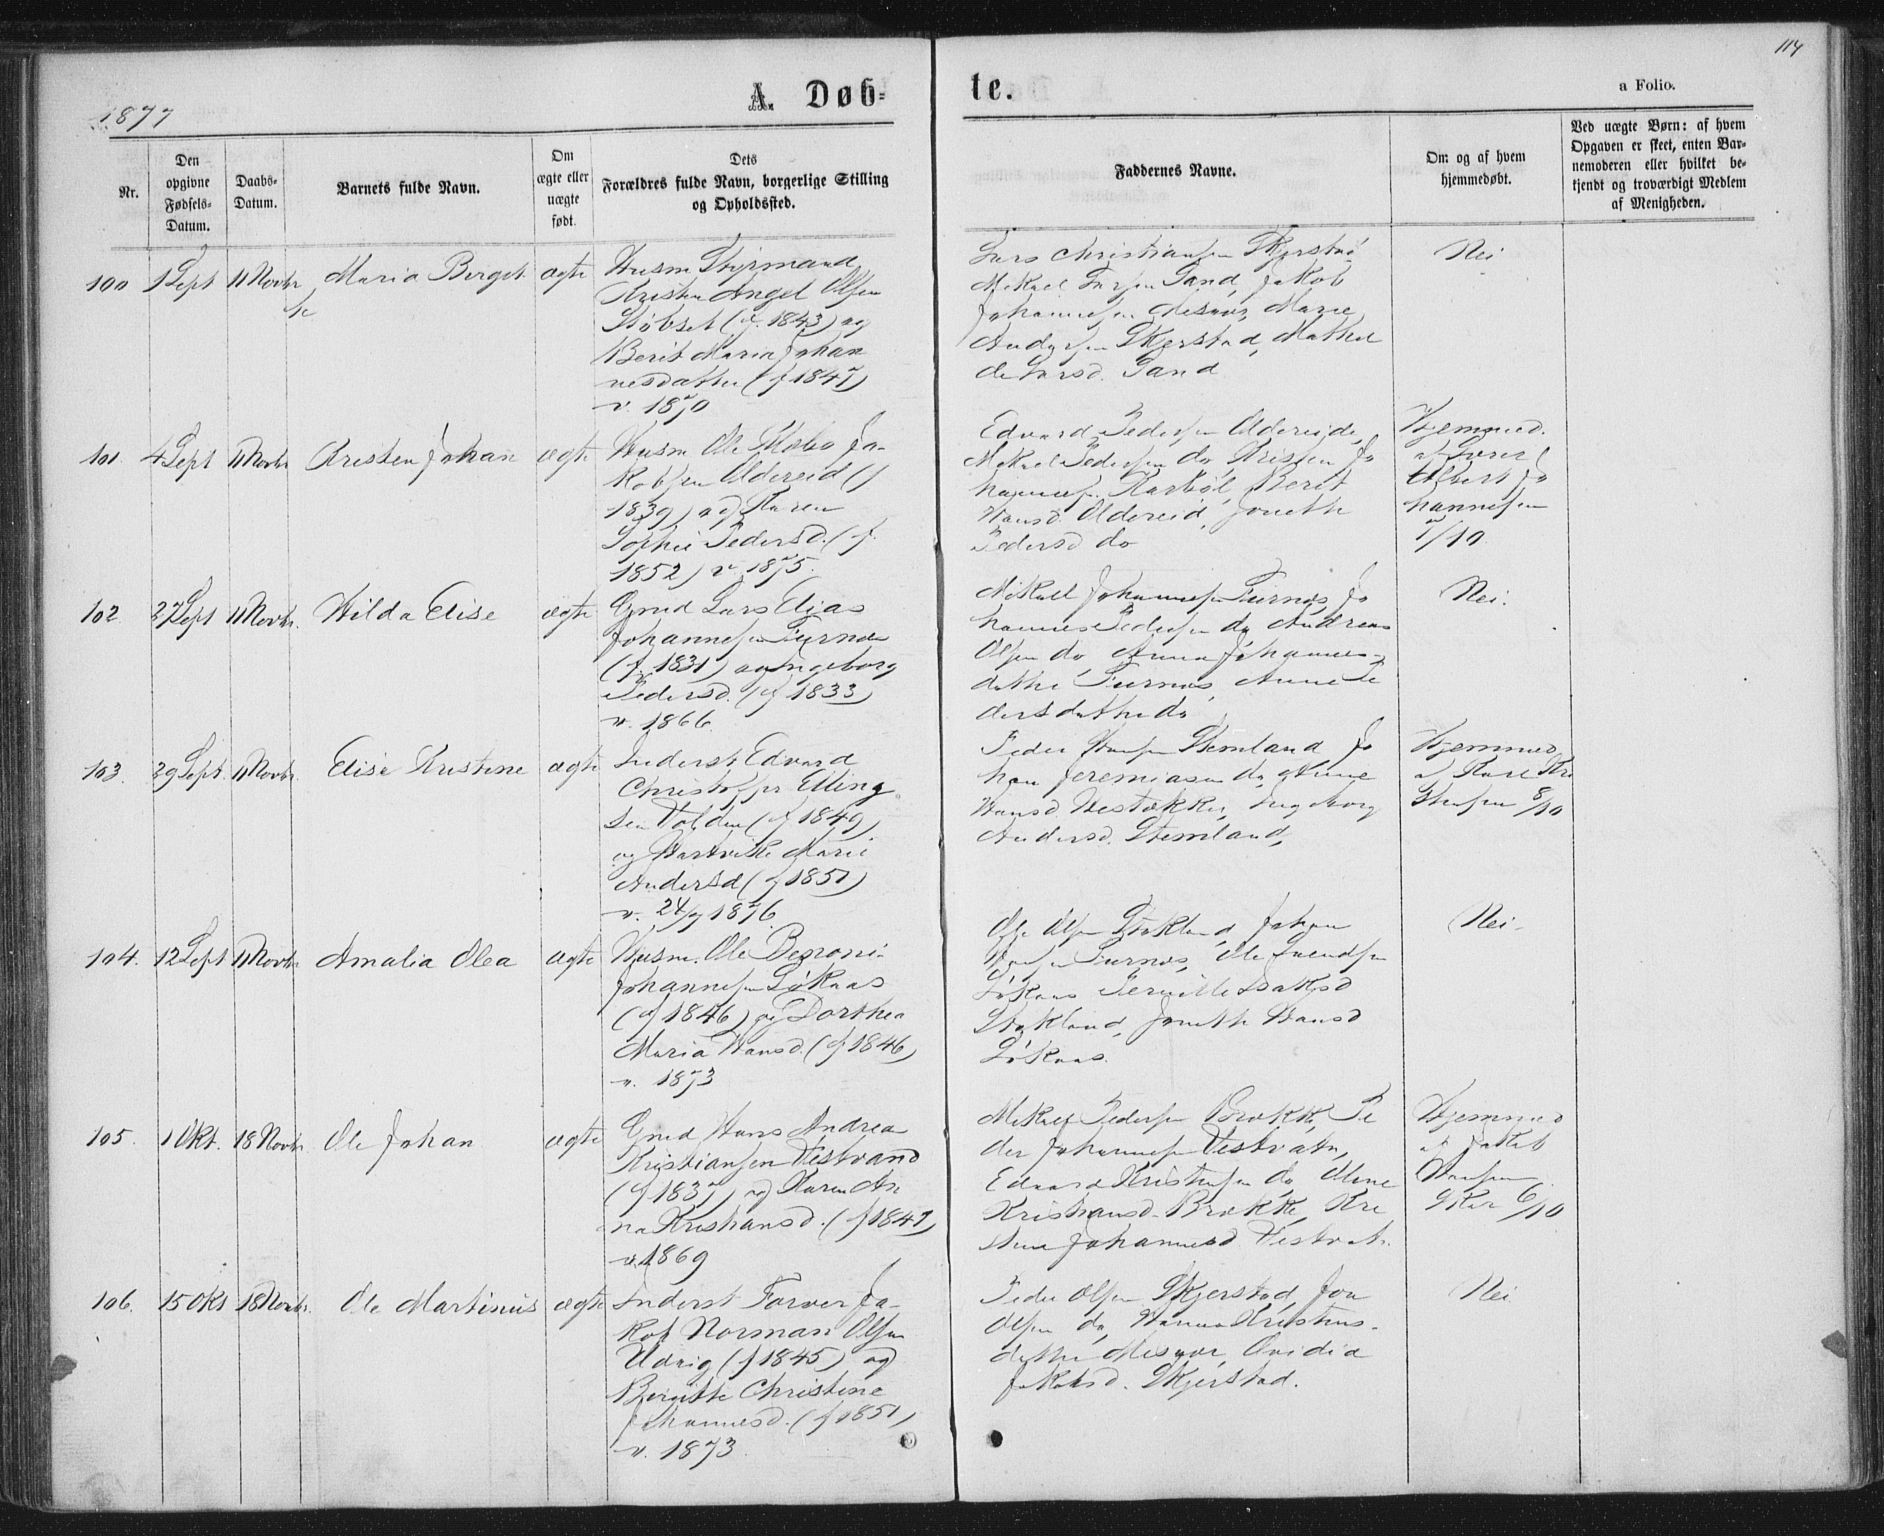 114
1877
A. Døb-
te.
a Folio.
Nr.
Den
opgivne
Fødsels-
Datum.
Daabs-
Datum.
Barnets fulde Navn.
Om
ægte eller
uægte
født.
Dets
Forældres fulde Navn, borgerlige Stilling
og Opholdssted.
Faddernes Navne.
Om og af hvem
hjemmedøbt.
Ved uægte Børn: af hvem
Opgaven er skeet, enten Bar-
nemoderen eller hvilket be-
kjendt og troværdigt Medlem
af Menigheden.
100
1 Sept
11 Novbr
Maria Berget
ægte
Husm Styrmand
Kristen Angel Olsen
Støbset (f. 1843) og
Berit Maria Johan
nesdatter (f 1847)
v. 1870
Lars Christiansen Skjerstad
Mikael Larsen Sand, Jakob
Johannesen Misvær, Marie
Andersen Skjerstad, Mathil
de Larsd. Sand
Nei
101.
4 Sept
11 Novbr
Kristen Johan
ægte
Husm Ole Mobo Ja-
kobsen Oldereid (f
1839) og Karen
Sophie Pedersd. (f.
1852) v. 1875.
Edvard Pedersen Oldereide,
Mikael Pedersen do Kristen Jo
hannesen Karbøl, Berit
Hansd. Oldereid, Joneth
Pedersd do
Hjemmed.
af
Albert Jo
hannesen
7/10
102.
27 Sept
11 Novbr.
Hilda Elise
ægte
Gmd Lars Elias
Johannesen Turnes
(f. 1831) og Ingeborg
Pedersd. (f 1833)
v. 1866.
Mikael Johannesen Turnes, Jo
hannes Pedersen do, Andreas
Olsen do, Anna Johannes-
datter Turnes, Anne Pe
dersdatter do
Nei.
103.
29 Sept.
11 Novbr.
Elise Kristine
ægte
Inderst Edvard
Christoffer Elling
sen Valden (f 1849)
og Hartvikke Marie
Andersd (f 1851)
v. 24/9 1876.
Peder Hansen Stemland Jo
han Jeremiasen do, Anne
Hansd. Vestakker, Ingeborg
Andersd. Stemland,
Hjemmed
af Karl Kri
stensen 8/10
104.
12 Sept
11 Novbr.
Amalia Olea
ægte
Husm. Ole Benoni
Johannesen Løkaas
(f 1846) og Dorthea
Maria Hansd. (f 1846)
v. 1873
Ole Olsen Stokland, Johan
Hansen Turnes, Ole Svendsen
Løkaas Pernille Isaksd
Stokland, Joneth Hansd
Løkaas.
Nei.
105.
1 Okt.
18 Novbr.
Ole Johan
ægte
Gmd Hans Andrea
Kristiansen Vestvand
(f 1837) og Karen An
na Kristiansd. (f 1847
v. 1869
Mikael Pedersen Brække, Pe
der Johannesen Vestvatn,
Edvard Kristensen do, Oline
Kristiansd. Brække, Kri
stine Johannesd Vestvat.
Hjemmed
af Jakob
Hansen
Skar 6/10
106.
15 Okt
18 Novbr.
Ole Martinus
ægte
Inderst Farver Ja-
kob Norman Olsen
Udvig (f 1845) og
Bergitte Christine
Johannesd. (f 1851)
v. 1873.
Peder Olsen Skjerstad, Jon
Olsen do, Hanna Kristens-
datter Misvær, Ovidia
Jakobsd. Skjerstad.
Nei